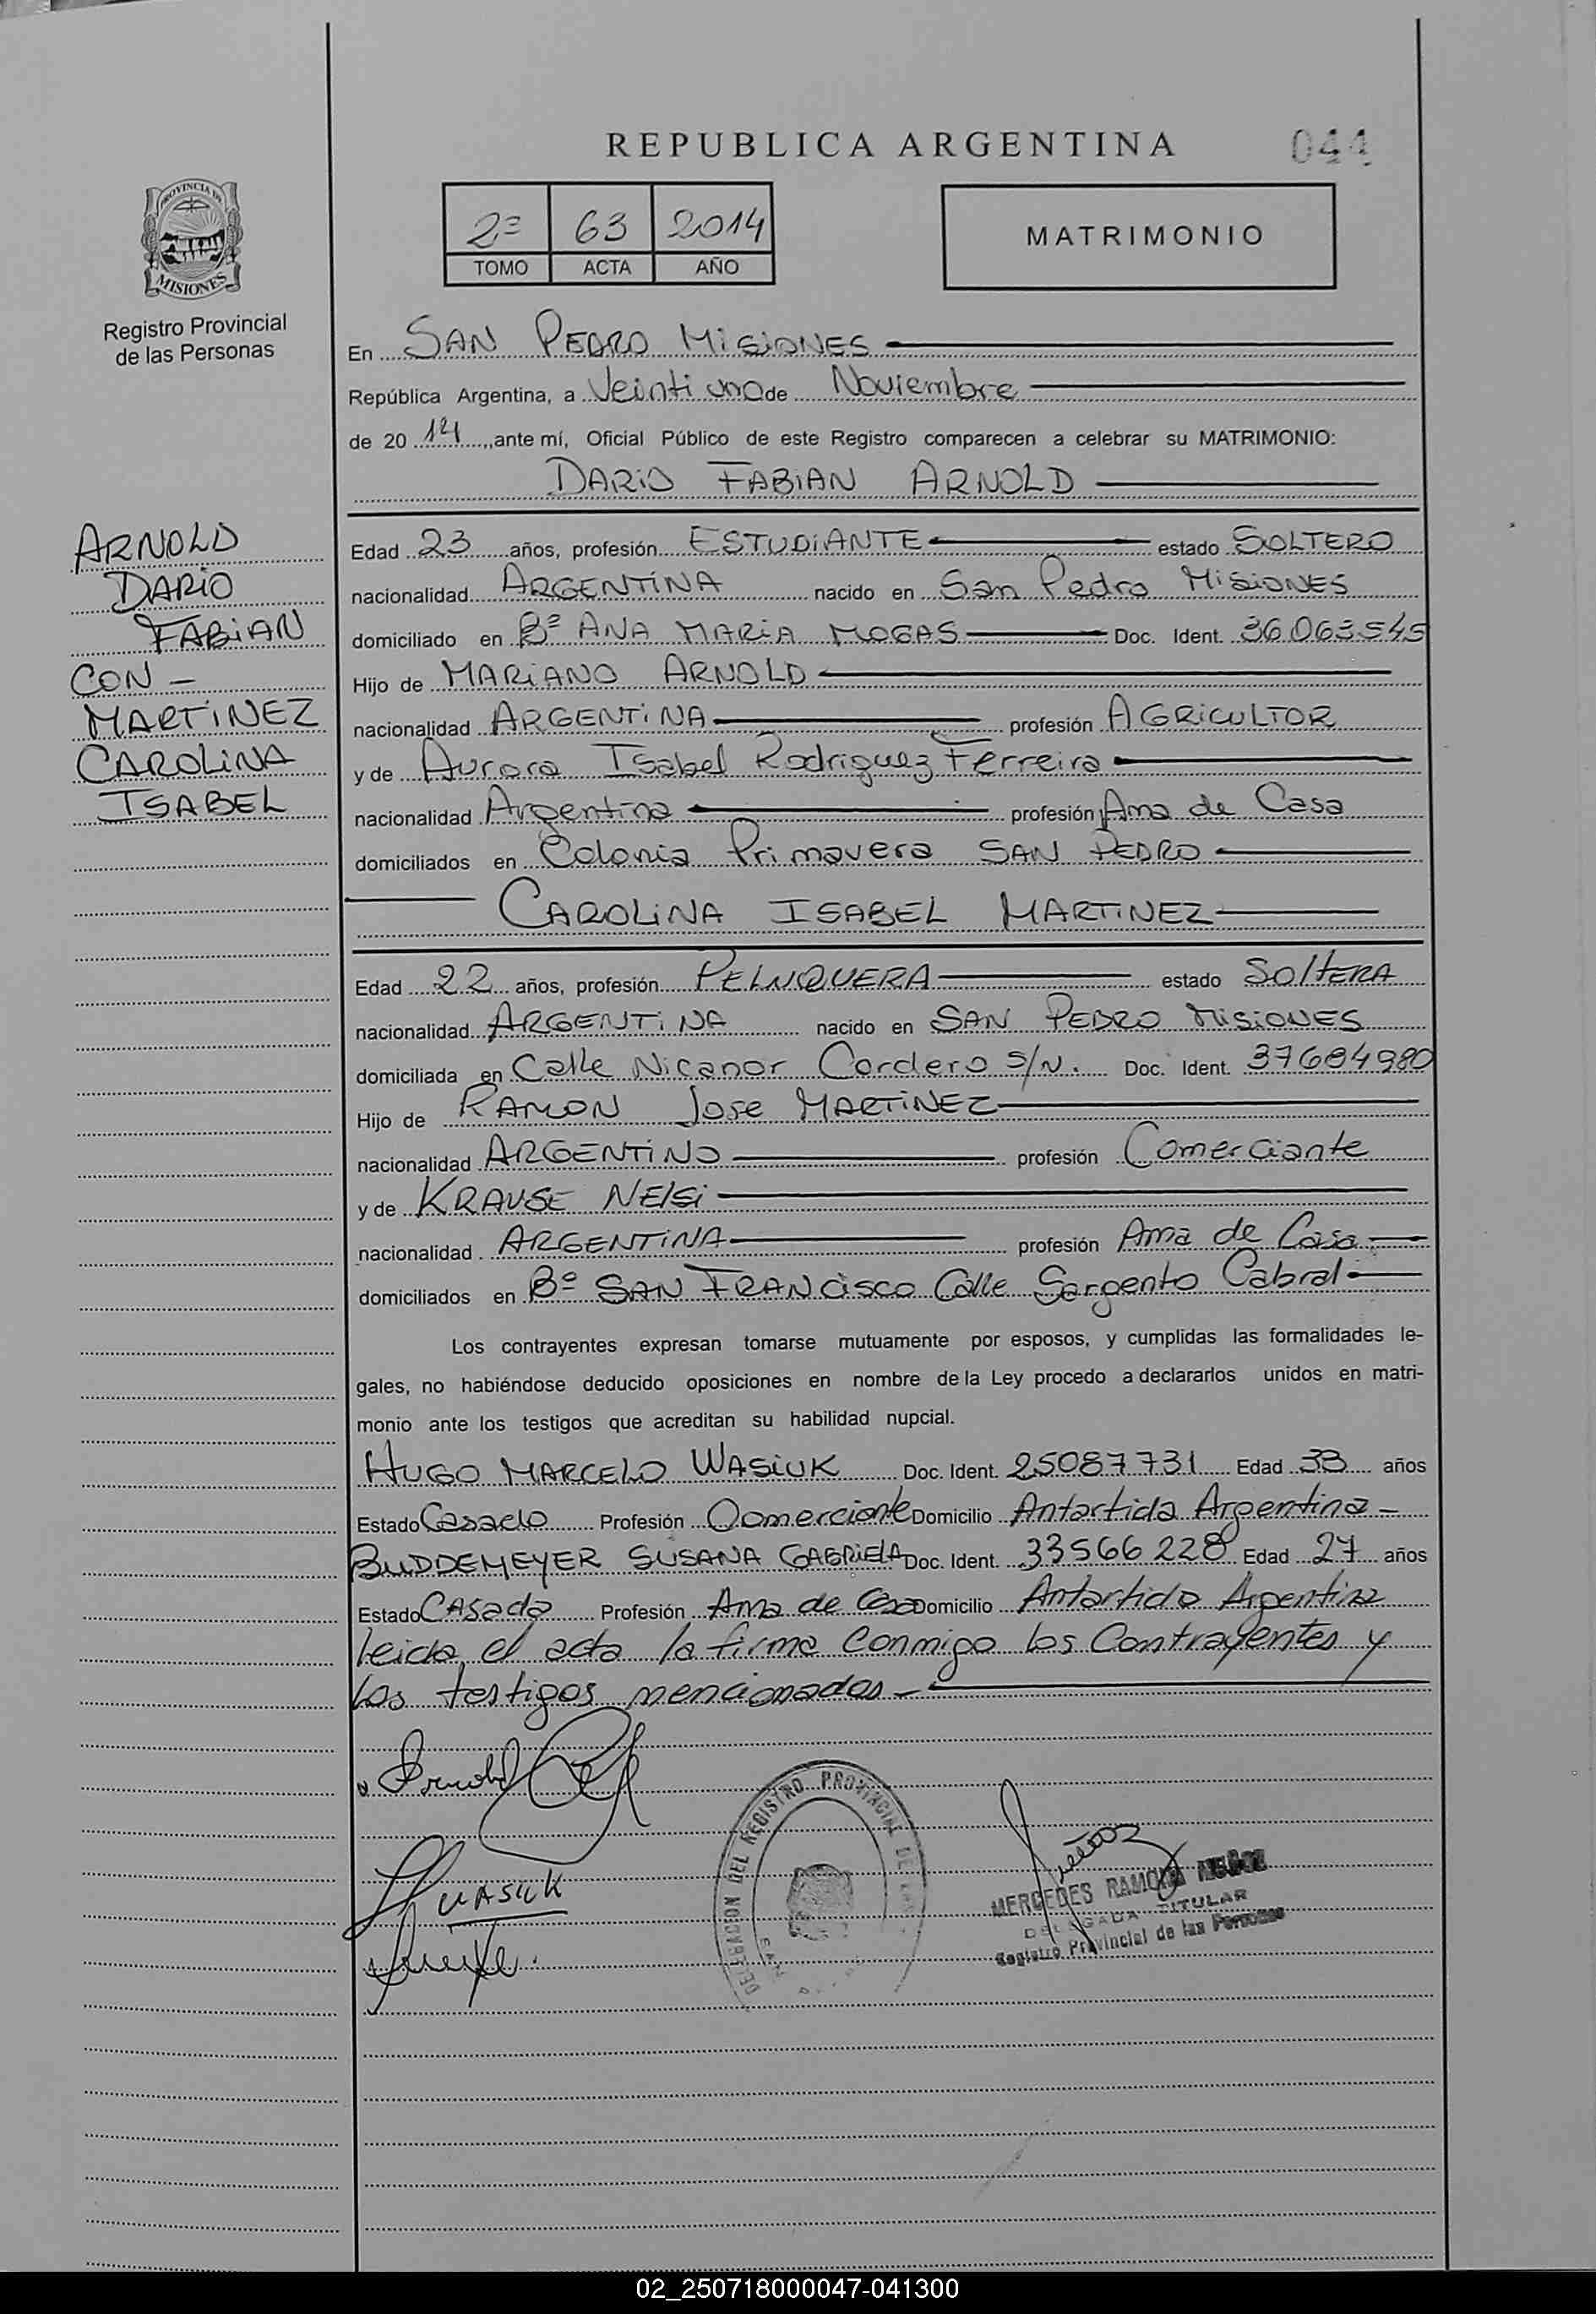 REPUBLICA ARGENTINA
044
PROVINCIA DE
MISIONES
Registro Provincial
de las Personas
2º 63 2014
TOMO ACTA AÑO
MATRIMONIO
En SAN PEDRO MISIONES
República Argentina, a Veinti uno de Noviembre
de 20 14, ante mí, Oficial Público de este Registro comparecen a celebrar su MATRIMONIO:
DARIO FABIAN ARNOLD
ARNOLD
DARIO
FABIAN
CON -
MARTINEZ
CAROLINA
ISABEL
Edad 23 años, profesión ESTUDIANTE estado SOLTERO
nacionalidad ARGENTINA nacido en San Pedro MISIONES
domiciliado en Bº ANA MARIA MOGAS Doc. Ident. 36.063.545
Hijo de MARIANO ARNOLD
nacionalidad ARGENTINA profesión AGRICULTOR
y de Aurora Isabel Rodriguez Ferreira
nacionalidad Argentina profesión Ama de Casa
domiciliados en Colonia Primavera SAN PEDRO
CAROLINA ISABEL MARTINEZ
Edad 22 años, profesión PELUQUERA estado SOLTERA
nacionalidad ARGENTINA nacido en SAN PEDRO MISIONES
domiciliada en Calle Nicanor Cordero S/N. Doc. Ident. 37684980
Hijo de RAMON Jose MARTINEZ
nacionalidad ARGENTINO profesión Comerciante
y de KRAUSE NELSI
nacionalidad ARGENTINA profesión Ama de Casa
domiciliados en Bº SAN FRANCISCO Calle Sargento Cabral
Los contrayentes expresan tomarse mutuamente por esposos, y cumplidas las formalidades le-
gales, no habiéndose deducido oposiciones en nombre de la Ley procedo a declararlos unidos en matri-
monio ante los testigos que acreditan su habilidad nupcial.
HUGO MARCELO WASIUK Doc. Ident. 25087731 Edad 33 años
Estado Casado Profesión Comerciante Domicilio Antartida Argentina -
BUDDEMEYER SUSANA GABRIELA Doc. Ident. 33566228 Edad 27 años
Estado CASada Profesión Ama de Casa Domicilio Antartida Argentina
leida el acta la firma conmigo los Contrayentes y
los testigos mencionados -
Arnold
WASIUK
DELEGACION DEL REGISTRO PROVINCIAL DE LAS
SAN
MERCEDES RAMONA MUÑOZ
DELEGADA TITULAR
Registro Provincial de las Personas
02_250718000047-041300